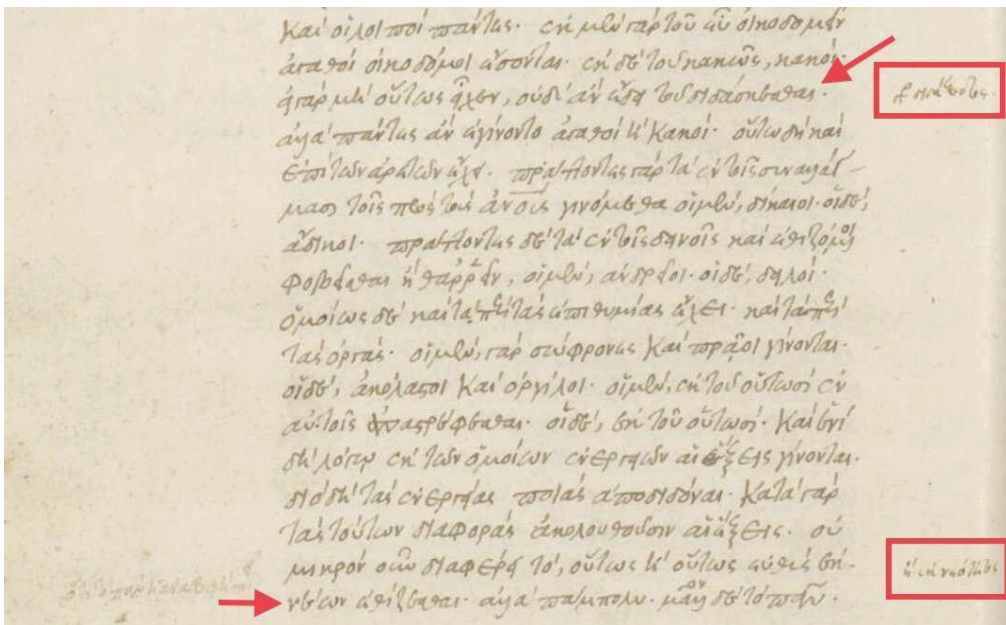 καὶ οἱ λοιποὶ πάντες. ἐκ μὲν γὰρ τοῦ εὖ οἰκοδομεῖν
ἀγαθοὶ οἰκοδόμοι ἔσονται. ἐκ δὲ τοῦ κακῶς, κακοί.
εἰ γὰρ μὴ οὕτως εἶχεν, οὐδὲν ἂν ἔδει τοῦ διδάσκεσθαι.
διδάξοντος.
ἀλλὰ πάντες ἂν ἐγίνοντο ἀγαθοὶ ἢ κακοί. οὕτω δὴ καὶ
ἐπὶ τῶν ἀρετῶν ἔχει. πράττοντες γὰρ τὰ ἐν τοῖς συναλλάγ-
μασι τοῖς πρὸς τοὺς ἀνους γινόμεθα οἱ μὲν, δίκαιοι. οἱ δὲ,
ἄδικοι. πράττοντες δὲ τὰ ἐν τοῖς δεινοῖς καὶ ἐθιζόμενοι
φοβεῖσθαι ἢ θαρρεῖν, οἱ μὲν, ἀνδρεῖοι. οἱ δὲ, δειλοί.
ὁμοίως δὲ καὶ τὰ περὶ τὰς ἐπιθυμίας ἔχει. καὶ τὰ περὶ
τὰς ὀργάς. οἱ μὲν, γὰρ σώφρονες καὶ πρᾶοι γίνονται.
οἱ δὲ, ἀκόλαστοι καὶ ὀργίλοι. οἱ μὲν, ἐκ τοῦ οὑτωσὶ ἐν
αὐτοῖς ἀναστρέφεσθαι. οἱ δὲ, ἐκ τοῦ οὑτωσί. καὶ ἑνὶ
δὴ λόγῳ ἐκ τῶν ὁμοίων ἐνεργειῶν αἱ ἕξεις γίνονται.
διὸ δεῖ τὰς ἐνεργείας ποιὰς ἀποδιδόναι. κατὰ γὰρ
τὰς τούτων διαφορὰς ἀκολουθοῦσιν αἱ ἕξεις. οὐ
μικρὸν οὖν διαφέρει τὸ, οὕτως ἢ οὕτως εὐθὺς ἐκ
ἢ ἐκ νεότητος
νέων ἐθίζεσθαι. ἀλλὰ πάμπολυ. μᾶλλον δὲ τὸ πᾶν.